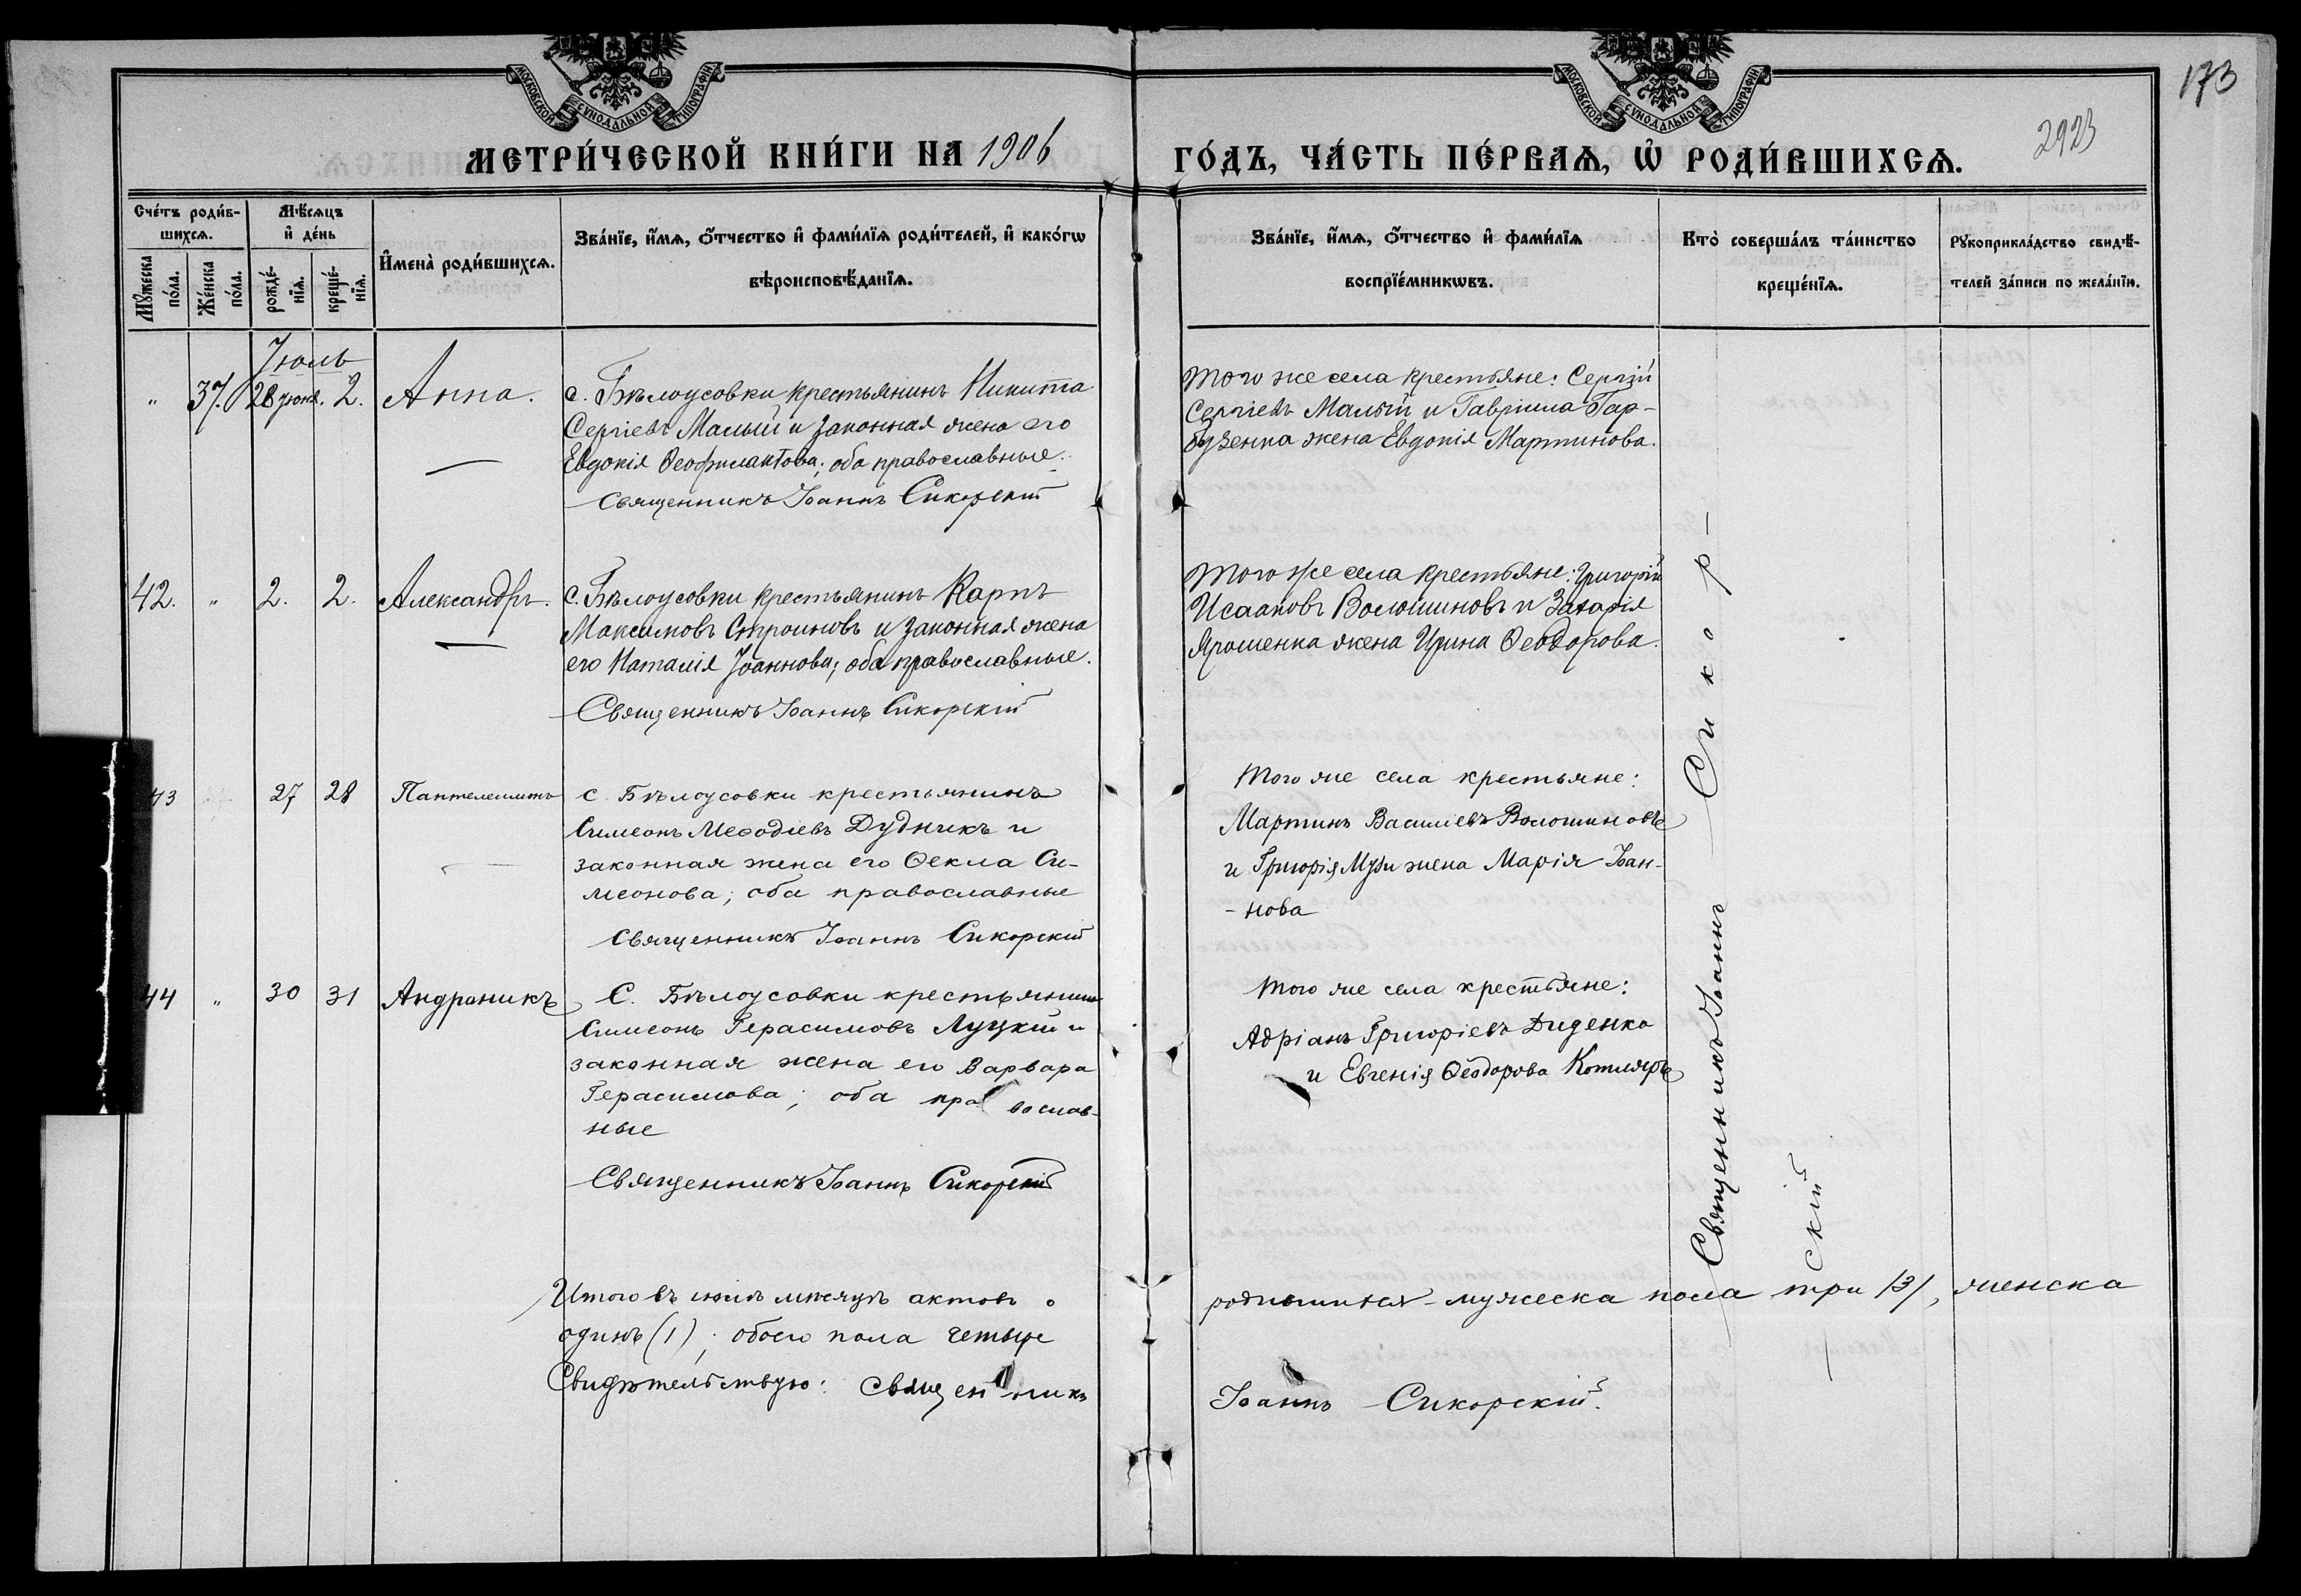 173
2923
МОСКОВСКОЙ СѴНОДАЛЬНОЙ ТИПОГРАФІИ
МОСКОВСКОЙ СѴНОДАЛЬНОЙ ТИПОГРАФІИ
МЕТРИ́ЧЕСКОЙ КНИ́ГИ НА 1906
ГО́ДЪ, ЧА́СТЬ ПЕ́РВАѦ, Ѡ҆ РОДИ́ВШИХСѦ.
Сче́тъ роди́в-
шихсѧ.
Мꙋ́жеска
по́ла.
Же́нска
по́ла.
Мѣ́сѧцъ
и҆ де́нь
рожде́-
нїѧ.
креще́-
нїѧ.
И҆мена̀ роди́вшихсѧ.
Зва́нїе, и҆́мѧ, ѻ҆́тчество и҆ фами́лїѧ роди́телей, и҆ како́гѡ
вѣроисповѣ́данїѧ.
Зва́нїе, и҆́мѧ, ѻ҆́тчество и҆ фами́лїѧ
воспрїе́мникѡвъ.
Кто̀ соверша́лъ та́инство
креще́нїѧ.
Рꙋкоприкла́дство свидѣ́-
телей за́писи по жела́нїю.
Іюль
" 37. 28 іюня. 2. Анна.
с. Бѣлоусовки крестьянинъ Никита
Сергіевъ Малый и законная жена его
Евдокія Ѳеофилактова; оба православные.
Священникъ Іоаннъ Сикорскій
Того же села крестьяне: Сергій
Сергіевъ Малый и Гавріила Гар-
бузенка жена Евдокія Мартинова.
42. " 2. 2. Александръ.
с. Бѣлоусовки крестьянинъ Карпъ
Максимовъ Строиновъ и законная жена
его Наталія Іоаннова; оба православные.
Священникъ Іоаннъ Сикорскій
Того же села крестьяне: Григорій
Исааковъ Волошиновъ и Захарія
Ярошенка жена Ирина Ѳеодорова.
43 27 28 Пантелеимонъ
с. Бѣлоусовки крестьянинъ
Симеонъ Меѳодіевъ Дудникъ и
законная жена его Ѳекла Си-
меонова; оба православные
Священникъ Іоаннъ Сикорскій
Того же села крестьяне:
Мартинъ Василіевъ Волошиновъ
и Григорія жена Марія Іоан-
-нова
44 " 30 31 Андроникъ
С. Бѣлоусовки крестьянинъ
Симеонъ Герасимовъ Луцкій и
законная жена его Варвара
Герасимова; оба православ-
ные
Священникъ Іоаннъ Сикорскій
Того же села крестьяне:
Адріанъ Григоріевъ Диденко
и Евгенія Ѳеодорова Котляръ
Священникъ Іоаннъ Сикор-
скій
Итого въ іюлѣ мѣсяцѣ актовъ о родившихся мужеска пола три /3/, женска
одинъ (1); обоего пола четыре
Свидѣтельствую: Священникъ Іоаннъ Сикорскій.